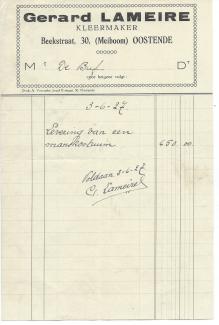 Gerard LAMEIRE
KLEERMAKER
Beekstraat, 30, (Meiboom) OOSTENDE
Mr De Bref Dt
voor hetgeen volgt:
3-6-27
Levering van een
manskostuum 650.00
Voldaan 3-6-27
G. Lameire